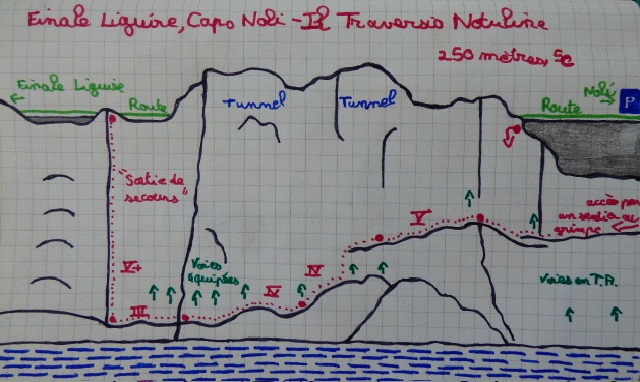 Finale Ligure, Capo Noli - Il Traversio Notuline
250 mètres, 5c
Finale Ligure
Route
Tunnel
Tunnel
Route
Noli
P
"Sortie de
secours"
V
accès par
un sentier ou
grimpe
V+
Voies
équipées
IV
IV
III
Voies en T.A.